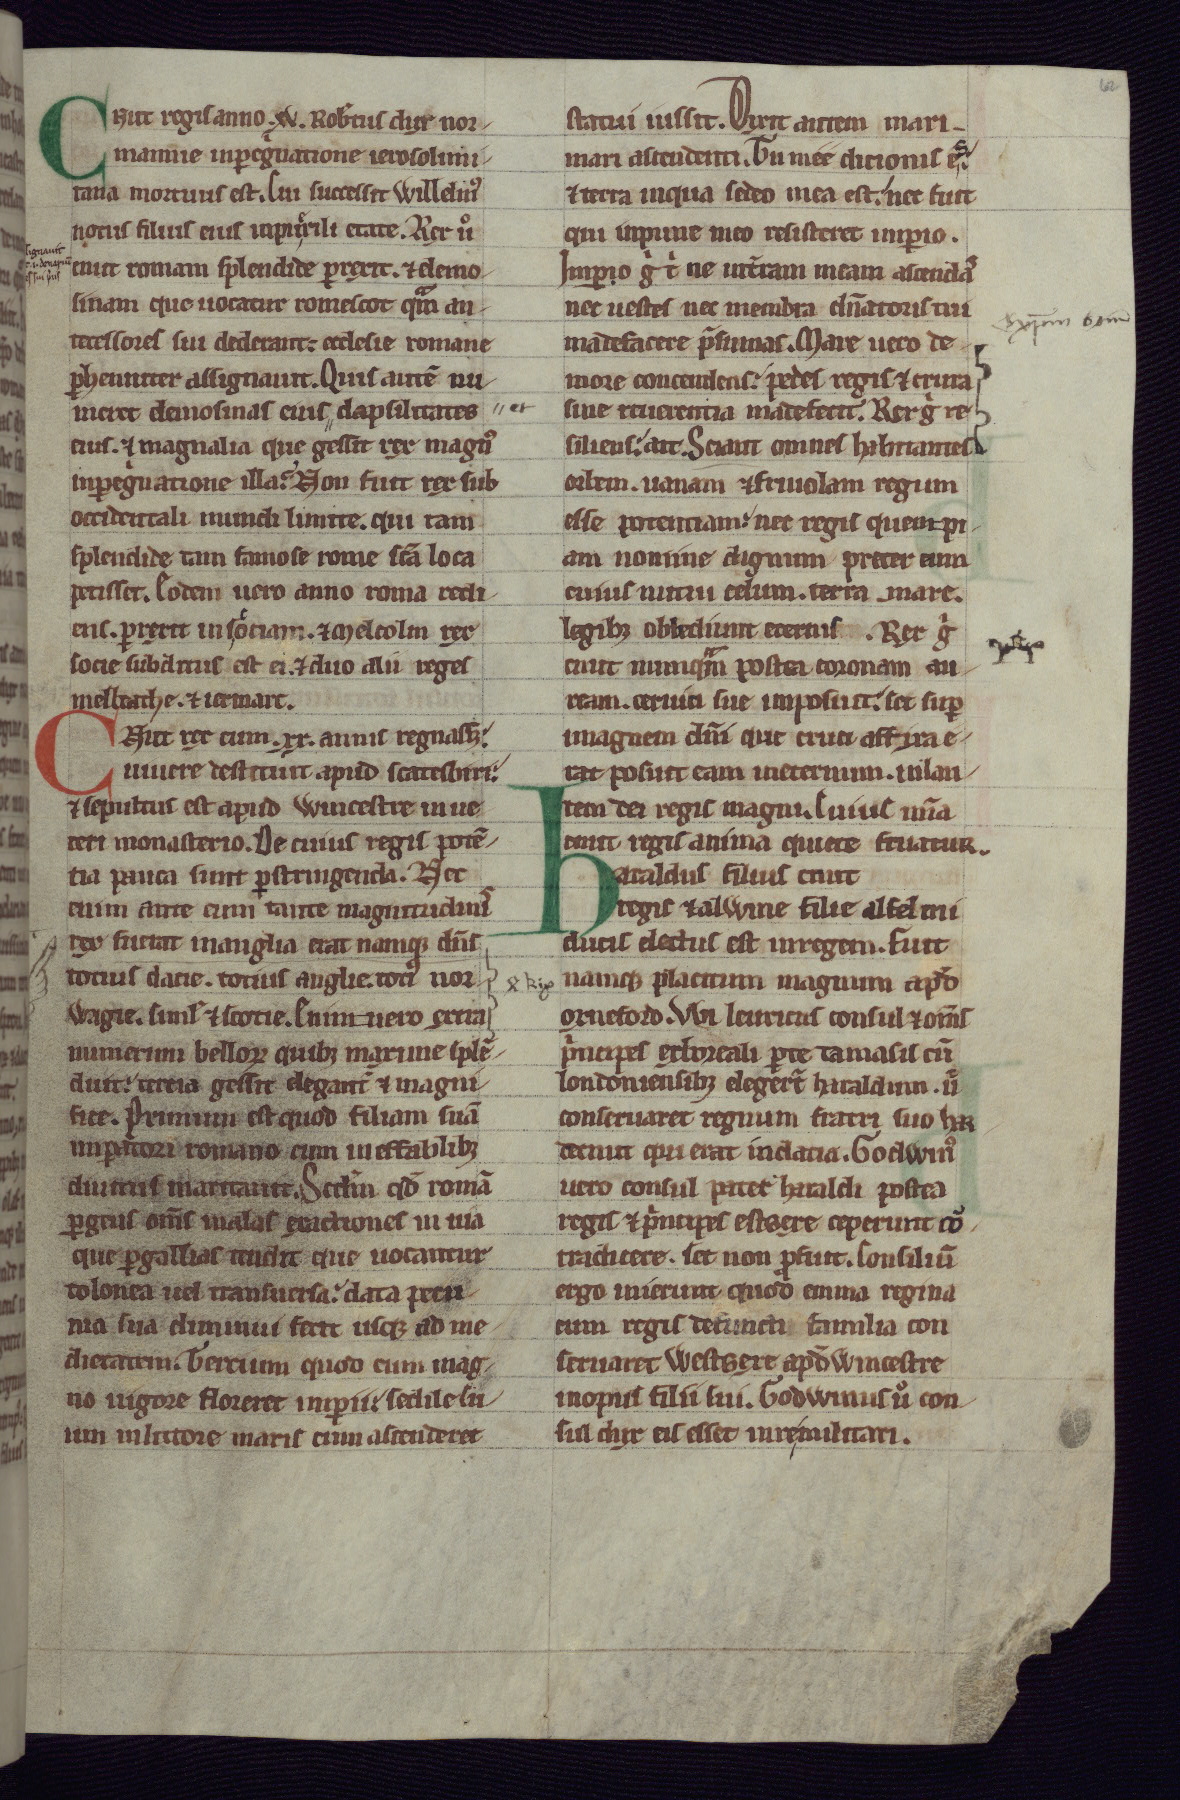 Cnut regis anno .xv. Rob'tus dux nor-
mannie in peg'natione ierosolimi-
tana mortuus est. Cui successit Willelm'
notus filius eius in puerili etate. Rex u°
cnut romam splendide perrexit. & elemo-
sinam que uocatur romescot qam an-
tecessores sui dederant: ecclesie romane
phenniter assignauit. Quis autē nu-
meret elemosinas eius, dapsilitates " et
eius. & magnalia que gessit rex magn'
in peg'natione illa? Non fuit rex sub
occidentali mundi limite. qui tam
splendide tam famose rome scā loca
petisset. Eodem uero anno roma redi-
ens. perrexit in scotiam. & Melcolm rex
socie subditus est ei. & duo alii reges
melbache. & iermarc.
Cnut rex cum .xx. annis regnass;
uiuere destitit apud scatesbiri:
& sepultus est apud Wincestre in ue-
teri monasterio. De cuius regis potē-
tia pauca sunt pstringenda. Nec
enim ante eum tante magnitudinis
rex fuerat in anglia erat namq; dn̄s
totius dacie. totius anglie. toti' nor-
Wagie. simul & scotie. Enim uero extra
numerum bellorum quib; maxime splē-
duit: tercia gessit elegant' & magni-
fice. Primum est quod filiam suā
impatori romano cum ineffabilib;
diuitiis maritauit. Scdm̄ qd romā
pgens oms malas exactiones in uia
que p gallias tendit que uocantur
tolonea uel transuersa: data pecu-
nia sua diminui fecit usq; ad me-
dietatem. Tercium quod cum mag-
no uigore floreret impii: sedile su-
um in littore maris cum ascenderet
statui iussit. Dixit autem mari-
mari ascendenti. Tu mee dicionis es.
& terra in qua sedeo mea est: nec fuit
qui inpune meo resisteret imperio.
Imperio g° t' ne in terram meam ascendas
nec uestes nec membra dn̄atoris tui
madefacere p̄sumas. Mare uero de
more conscendens: pedes regis & crura
sine reuerentia madefecit. Rex g° re
siliens: ait. Sciant omnes habitantes
orbem. uanam & friuolam regum
esse potentiam: nec regis quempi-
am nomine dignum preter eum
cuius nutui celum. terra mare.
legib; obediunt eternis . Rex g°
cnut numqam postea coronam au-
ream. ceruici sue imposuit: set sup
imaginem dn̄i que cruci affixa e-
rat posuit eam in eternum. in lau-
dem dei regis magni. Cuius mīa
cnut regis anima quiete fruatur.
Haraldus filius cnut
regis & alWine filie alfelmi
ducis electus est in regem. Fuit
namq; placitum magnum apd
oxneford. Vbi leuricus consul & oms
p'ncipes ex boreali parte tamasis cū
londoniensib; elegert haraldum. ut
conseruaret regnum fratri suo har
decnut qui erat in dacia. GodWin'
uero consul pater haraldi postea
regis & p'ncipes estsexe ceperunt cō-
tradicere. set non pfuit. Consiliū
ergo inierunt quod emma regina
cum regis defuncti familia con
seruaret Westsexe apd Wincestre
in opus filii sui. GodWinus u° con
sul dux eis esset in re militari.